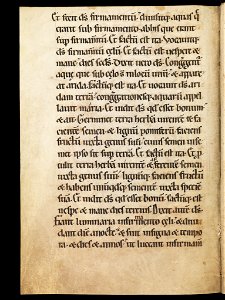 Et fecit ds firmamentū. diuisitq; aquas q̄
erant sub firmamento. ab his que erant
sup firmamtū. Et factū est ita. Vocauitq;
ds firmamtū celū. Et factū est uespere &
mane dies scds. Dixit uero ds. Congregent
aque que sub celo s̄ in locū unū. & appare
at arida. factūq; est ita. Et uocauit ds ari
dam terrā. congregationesq; aquarū appel
lauit maria. Et uidit ds qd esset bonum
& ait. Germinet terra herbā uirentē & fa
cientē semen. & lignū pomiferū faciens
fructū iuxta genus suū. cuius semen inse
met ipso sit sup terrā. Et factū est ita. Et p
tulit terra herbā uirentē & ferentē semen
iuxta genus suū. lignūq; faciens fructū
& habens unūqdq; sementē iuxta speciē
suā. Et uidit ds qd esset bonū. factūq; est
uespe & mane dies tercius. Dixit autē ds.
Fiant luminaria in firmamento celi. & diui
dant diē ac nocte. & sint in signa & tempo
ra. & dies & annos. ut luceant in firmam